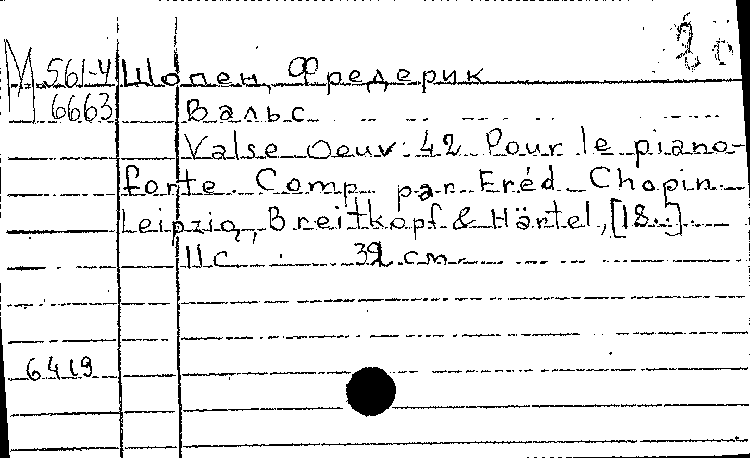 М 561-4 Шопен, Фредерик
6663 Вальс
Valse Oeuv. 42 Pour le piano-
forte. Comp. par Fréd. Chopin.
Leipzig, Breitkopf & Härtel, [18..].
11 с. 32 см.
6419